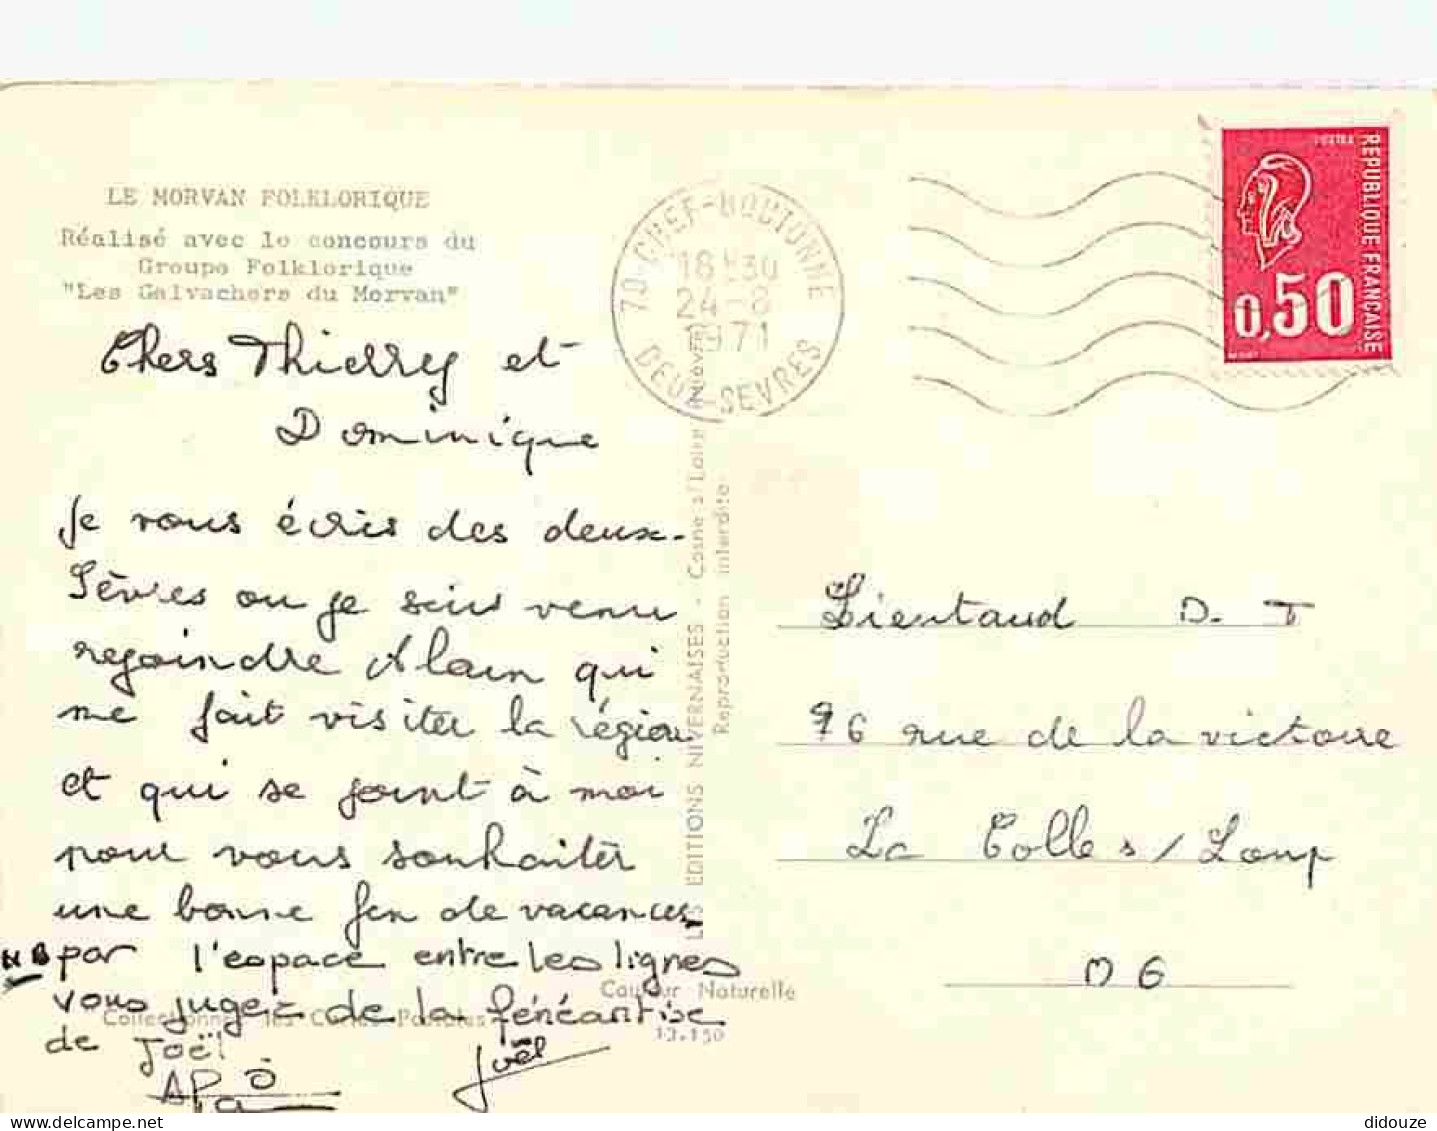 LE MORVAN FOLKLORIQUE
Réalisé avec le concours du
Groupe Folklorique
"Les Galvachers du Morvan"
Chers Thierry et
Dominique
Je vous écris des deux-
Sèvres ou je suis venu
rejoindre Alain qui
me fait visiter la région
et qui se joint à moi
pour vous souhaiter
une bonne fin de vacances
NB par l'espace entre les lignes
vous jugez de la fénéantise
de Joël
Joël
Collectionnez les Cartes Postales
Couleur Naturelle
13.150
LES EDITIONS NIVERNAISES - Cosne s/Loire (Nièvre)
Reproduction interdite
79-CHEF-BOUTONNE
18H30
24-8
1971
DEUX-SEVRES
POSTES
REPUBLIQUE FRANCAISE
0,50
Lientaud D. T
76 rue de la victoire
La Colle s/Loup
06
didouze